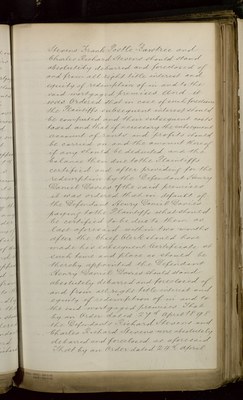 Stevens Frank Poolle Rawlins and
Charles Richard Stevens should stand
absolutely debarred and foreclosed of
and from all right title interest and
equity of redemption of in and to the
said mortgaged premises And it
was Ordered that in case of such foreclosure
the Plaintiffs subsequent interest should
be computed and their subsequent costs
taxed and that if necessary the subsequent
account of rents and profits should
be carried on and the amount thereof
if any should be deducted and the
balance then due to the Plaintiffs
certified and after providing for the
redemption by the Defendant Henry
Daniel Davies of the said premises
it was ordered that in default of
the Defendant Henry Daniel Davies
paying to the Plaintiffs what should
be certified to be due to them as
last aforesaid within two months
after the Chief Clerk should have
made his subsequent Certificate at
such time and place as should be
thereby appointed the Defendant
Henry Daniel Davies should stand
absolutely debarred and foreclosed of
and from all right title interest and
equity of redemption of in and to
the said mortgaged premises That
by an Order dated 29th April 1898
the Defendants Richard Stevens and
Charles Richard Stevens were absolutely
debarred and foreclosed as aforesaid
That by an Order dated 28th April